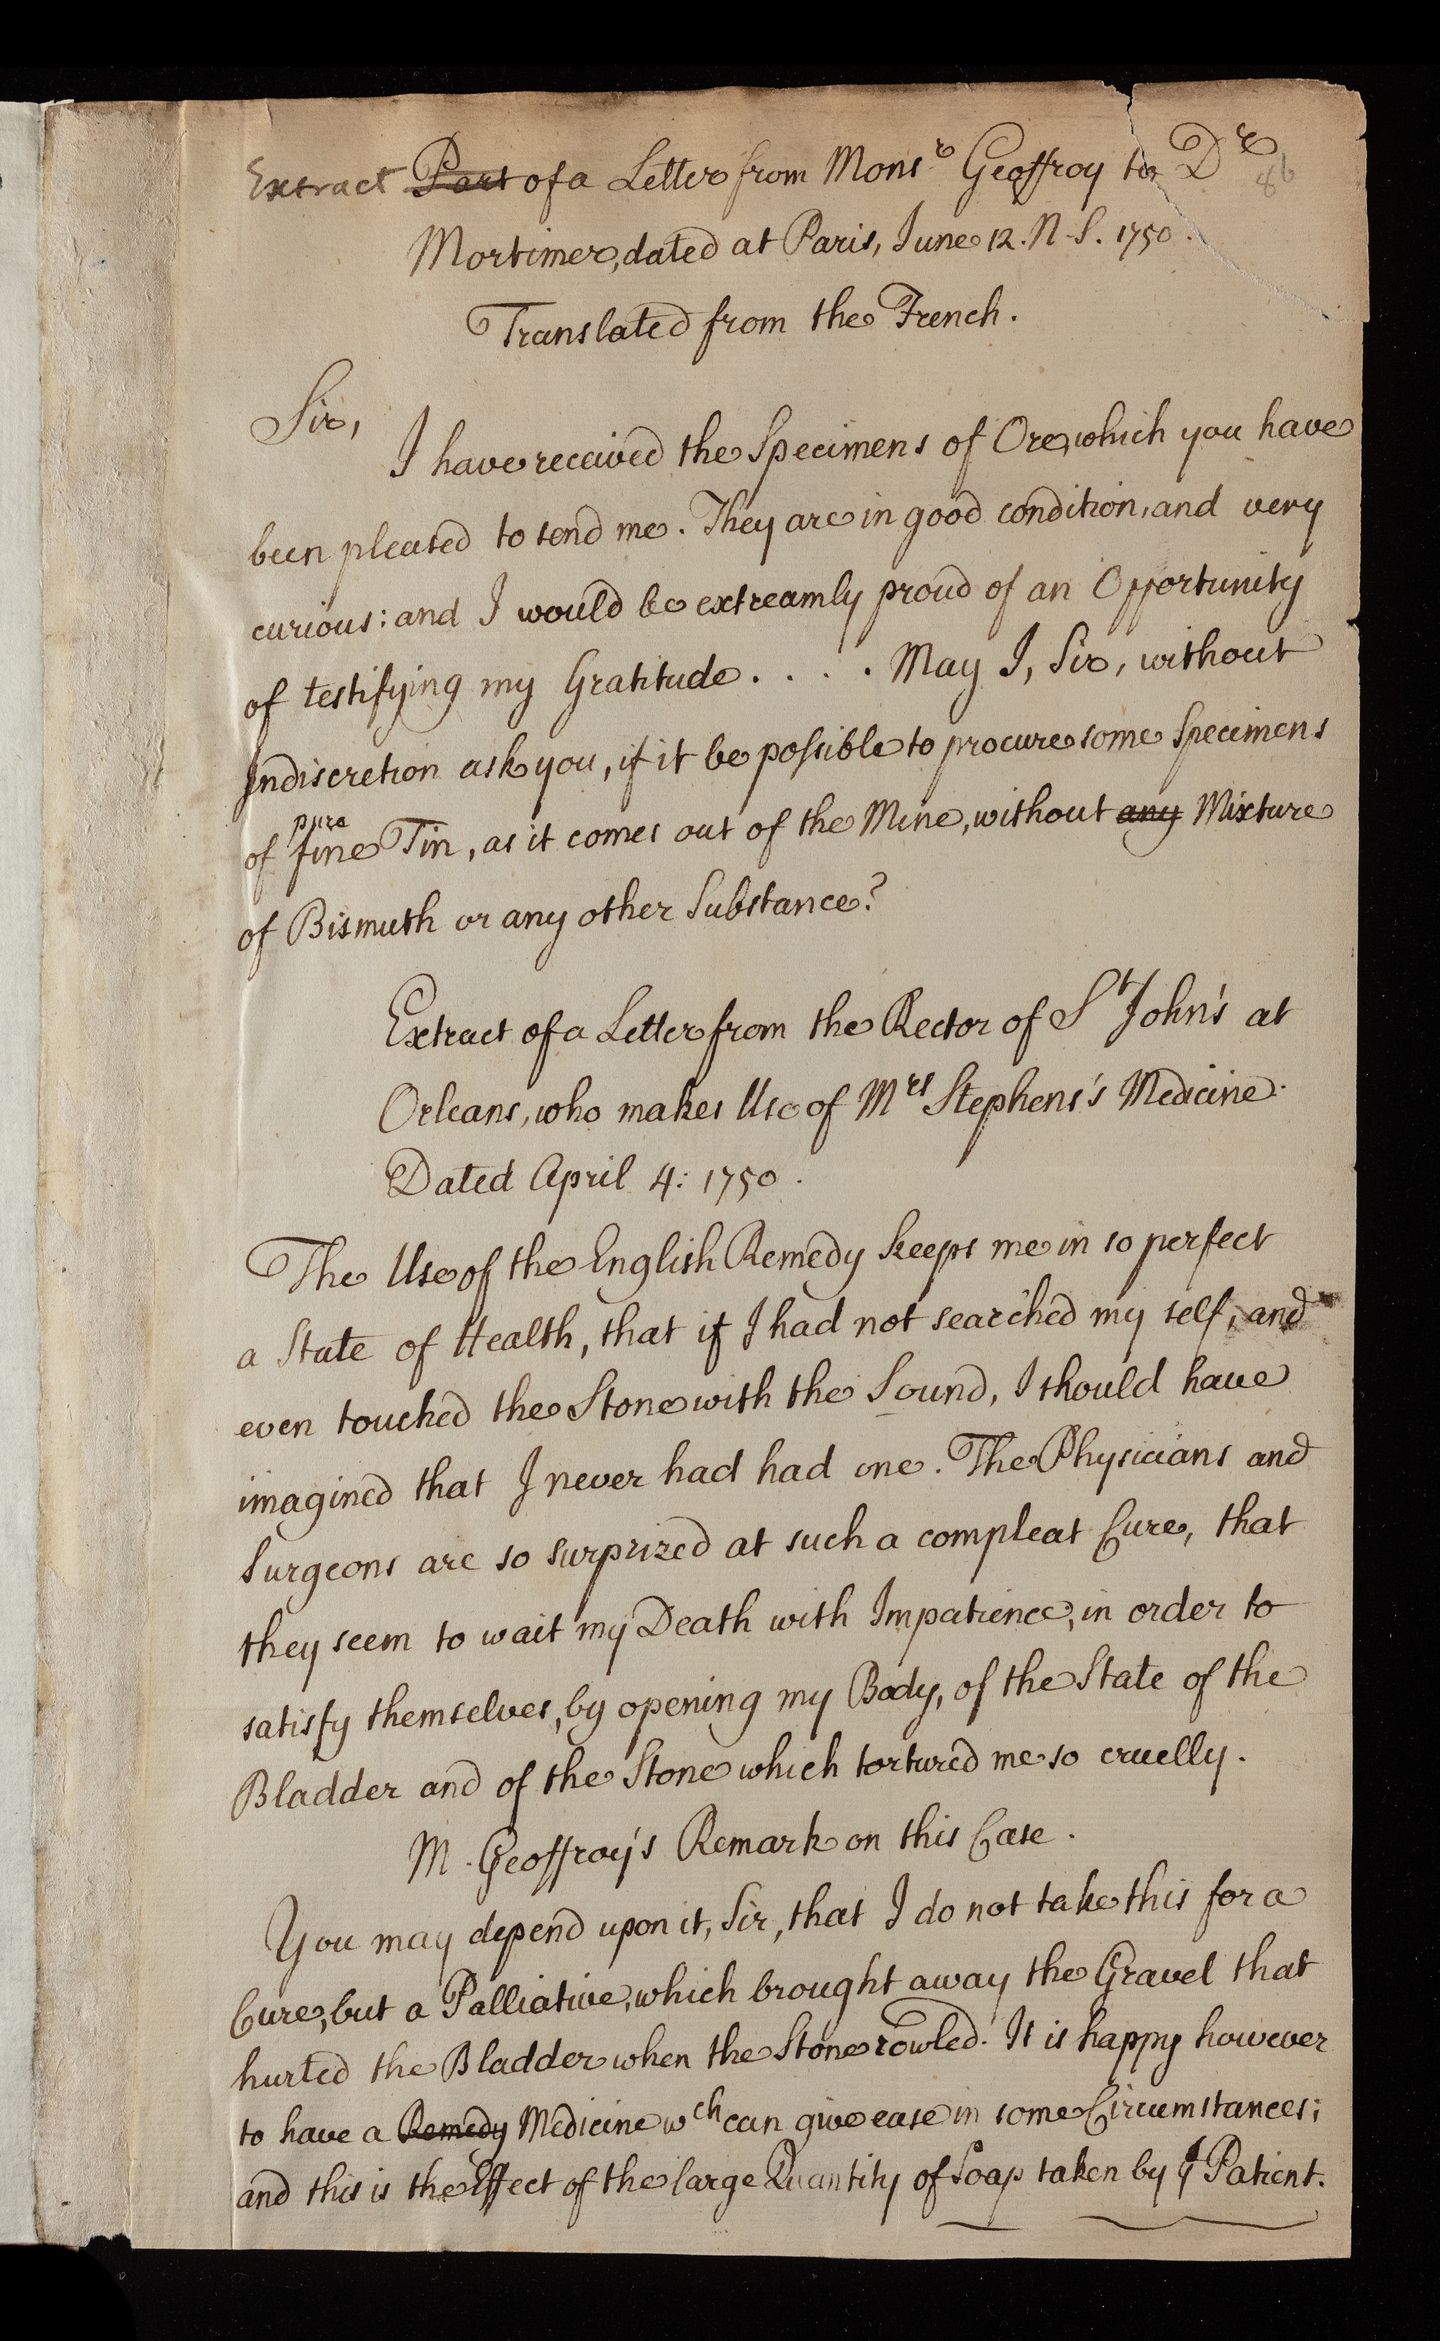 Extract Part of a Letter from Monsr Geoffroy to Dr
86
Mortimer, dated at Paris, June 12. N. S. 1750.
Translated from the French.
Sir,
I have received the Specimens of Ore, which you have
been pleased to send me. They are in good condition, and very
curious: and I would be extreamly proud of an Opportunity
of testifying my Gratitude . . . . May I, Sir, without
Indiscretion ask you, if it be possible to procure some Specimens
pure
of fine Tin, as it comes out of the Mine, without any Mixture
of Bismuth or any other Substance?
Extract of a Letter from the Rector of St John's at
Orleans, who makes Use of Mrs Stephens's Medicine.
Dated April 4: 1750.
The Use of the English Remedy keeps me in so perfect
a State of Health, that if I had not searched my self, and
even touched the Stone with the Sound, I should have
imagined that I never had had one. The Physicians and
Surgeons are so surprized at such a compleat Cure, that
they seem to wait my Death with Impatience, in order to
satisfy themselves, by opening my Body, of the State of the
Bladder and of the Stone which tortured me so cruelly.
M. Geoffroy's Remark on this Case.
You may depend upon it, Sir, that I do not take this for a
Cure, but a Palliative, which brought away the Gravel that
hurted the Bladder when the Stone rowled. It is happy however
to have a Remedy Medicine wch can give ease in some Circumstances;
and this is the Effect of the large Quantity of Soap taken by ye Patient.